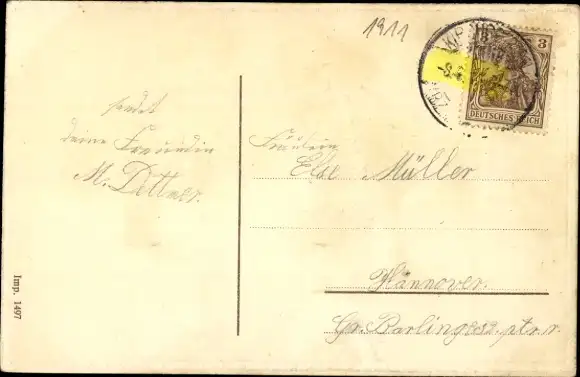 1911
3
DEUTSCHES REICH
sendet
deine Freundin
M. Dittmer.
Fräulein
Else Müller
Hannover.
Gr. Barlingestr.
Imp. 1497